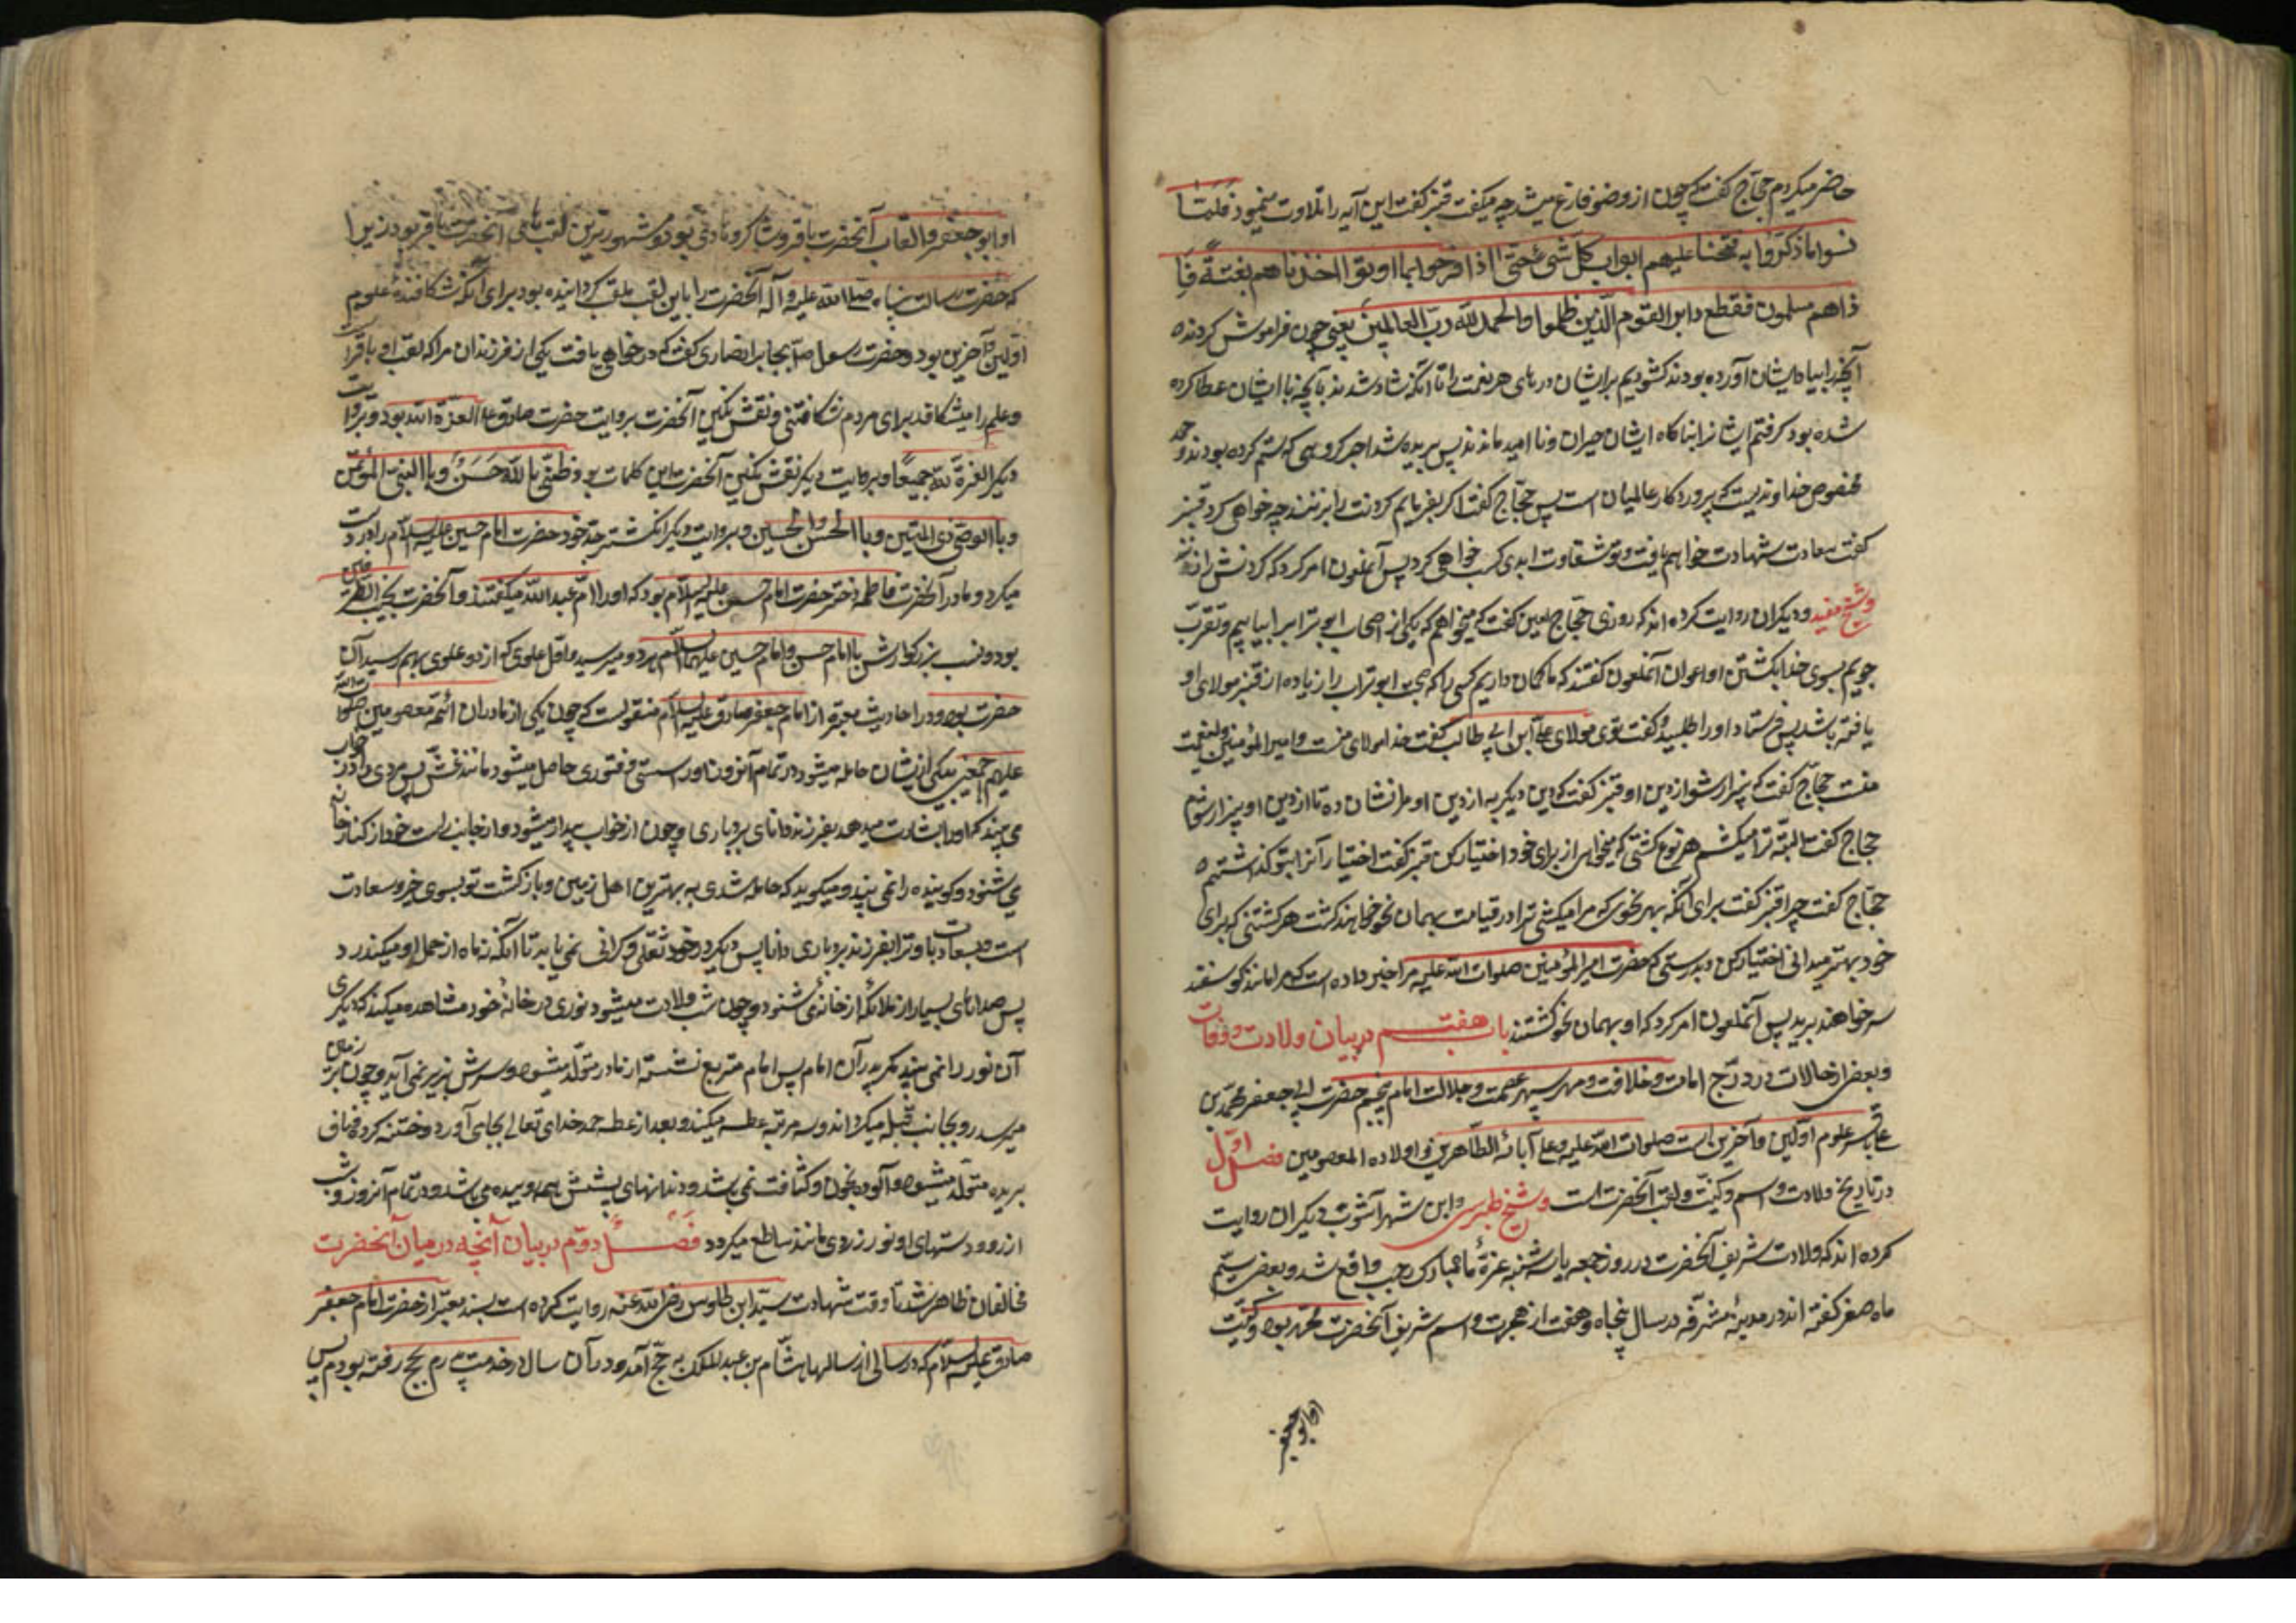 حاضر میکردم حجاج گفت که چون از وضو فارغ میشد چه میگفت قنبر گفت این آیه را تلاوت مینمود فَلَمّا
نسوا ماذکروا به فتحنا علیهم ابواب کل شیء حتی اذا فرحوا بما اوتوا اخذناهم بغتةً فَاِ
ذاهم مبلسون فقطع دابر القوم الّذین ظلموا والحمدلله ربّ العالمین یعنی چون فراموش کردند
آنچه را بیاد ایشان آورده بودند کشودیم بر ایشان درهای هر نعمت را تا آنکه شاد شدند بآنچه با ایشان عطا کرده
شده بود کرفتم ایشانرا بناکاه ایشان حیران و ناامید ماندند پس بریده شد آخر کروهی که ستم کرده بودند و حمد
مخصوص خداوندیست که پروردکار عالمیان است پس حجّاج گفت اکر بفرمایم کردنت را بزنند چه خواهی کرد قنبر
گفت سعادت شهادت خواهم یافت و تو شقاوت ابدی کسب خواهی کرد پس آنملعون امر کرد که کردنش را زدند
وشیخ مفید و دیکران روایت کرده اند که روزی حجّاج لعین گفت که میخواهم که یکی از اصحاب ابوتراب را بیابیم و تقرّب
جویم بسوی خدا بکشتن او اعوان آنملعون گفتند که ما کمان داریم کسی را که صحبت ابوتراب را زیاده از قنبر مولای او
یافته باشد پس فرستاد او را طلبید و گفت توی مولای علی ابن ابی طالب گفت خدا مولای منست و امیرالمؤمنین ولینعمت
منست حجّاج گفت که بیزار شو از دین او قنبر گفت که دین دیگر به از دین او مرا نشان ده تا از دین او بیزار شوم
حجاج گفت البتّه ترا میکشم هر نوع کشتی که میخواهی از برای خود اختیار کن قنبر گفت اختیار آنرا بتو کذاشتم
حجّاج گفت چرا قنبر گفت برای آنکه بهر نحوی که مرا میکشی ترا در قیامت بهمان نحو خواهند کشت هر کشتنی که برای
خود بهتر میدانی اختیار کن و بدرستی که حضرت امیرالمؤمنین صلوات الله علیه مرا خبر داده است که مرا مانند کوسفند
سر خواهند برید پس آنملعون امر کرد که او بهمان نحو کشتند باب هفتم در بیان ولادت و وفات
و بعضی از حالات در درج امامت و خلافت و مهر سپهر عصمت و جلالت امام پنجم حضرت ابی جعفر محمّد بن
علی باقر علوم اوّلین و آخرین است صلوات الله علیه و علی آبائه الطّاهرین و اولاده المعصومین فصل اوّل
در تاریخ ولادت و اسم و کنیّت و لقب آنحضرت است وشیخ طبرسی و ابن شهرآشوب و دیکران روایت
کرده اند که ولادت شریف آنحضرت در روز جمعه یا سه شنبه غرّهٔ ماه مبارک رجب واقع شد و بعضی سیّم
ماه صفر گفته اند در مدینهٔ مشرّفه در سال پنجاه و هفت از هجرت و اسم شریف آنحضرت محمّد بود و کنیّت
او ابوجعفر
او ابوجعفر و القاب آنحضرت باقر و شاکر و هادی بود و مشهورترین لقب های آنحضرت باقر بود زیرا
که حضرت رسالت پناه صلی الله علیه و آله آنحضرت را باین لقب ملقب کردانیده بود برای آنکه شکافندهٔ علوم
اوّلین و آخرین بود و حضرت رسول ص بجابر انصاری گفت که درخواهی یافت یکی از فرزندان مرا که لقب او باقر است
و علم را میشکافد برای مردم شکافتنی و نقش نکین آنحضرت بروایت حضرت صادق ع العزّة لله بود و بروایت
دیکر العزّة لله جمیعًا و بروایت دیکر نقش نکین آنحضرت این کلمات بود ظنّی بالله حَسَنٌ وبالنبی المؤتمن
وبالوصی ذی المنن و بالحسین والحسن و بروایت دیکر انکشتر جدّ خود حضرت امام حسین علیه السلام را در دست
میکرد و مادر آنحضرت فاطمه دختر حضرت امام حسن علیه السلام بود که او را امّ عبدالله میگفتند و آنحضرت نجیب الطّرفین
بود و نسب بزرکوارش باامام حسن و امام حسین علیهما السلام هر دو میرسید و اوّل علوی که از دو علوی بهم رسید آن
حضرت بود و در احادیث معتبره از امام جعفر صادق علیه السلام منقولست که چون یکی از مادران ائمّه معصومین صلوات الله
علیهم اجمعین بیکی از ایشان حامله میشود در تمام آنروز او را سستی و فتوری حاصل میشود مانند غش پس مردی را در خواب
می بیند که او را بشارت میدهد بفرزند دانای بردباری و چون از خواب بیدار میشود و از جانب راست خود از کنار خانه
می شنود و کوینده را نمی بیند و میکوید که حامله شدی به بهترین اهل زمین و بازکشت تو بسوی خیر و سعادت
است و بشارت باد ترا بفرزند بردباری دانا پس دیکر در خود ثقلی و کرانی نمی یابد تا آنکه نه ماه از حمل او میکذرد
پس صداهای بسیار از ملائکه از خانه می شنود و چون شب ولادت میشود نوری در خانهٔ خود مشاهده میکند که دیکری
آن نور را نمی بیند مکر پدر آن امام پس امام مربع نشسته از مادر متولّد میشود و سرش بزیر نمی آید و چون بزمین
میرسد رو بجانب قبله میکرداند و سه مرتبه عطسه میکند و بعد از عطسه حمد خدای تعالی بجای آورد و ختنه کرده و ناف
بریده متولّد میشود و آلوده بخون و کثافت نمی باشد و دندانهای پیشش همه روییده می باشد و در تمام آنروز و شب
از رو و دستهای او نور زردی مانند ساطع میکردد فَصْلُ دوّم در بیان آنچه در میان آنحضرت
و مخالفان ظاهر شد تا وقت شهادت سیّد ابن طاوس رضی الله عنه روایت کرده است بسند معتبر از حضرت امام جعفر
صادق علیه السلام که در سالی از سالها هشام بن عبدالملک به حجّ آمد و در آن سال در خدمت پدرم بحج رفته بودم پس